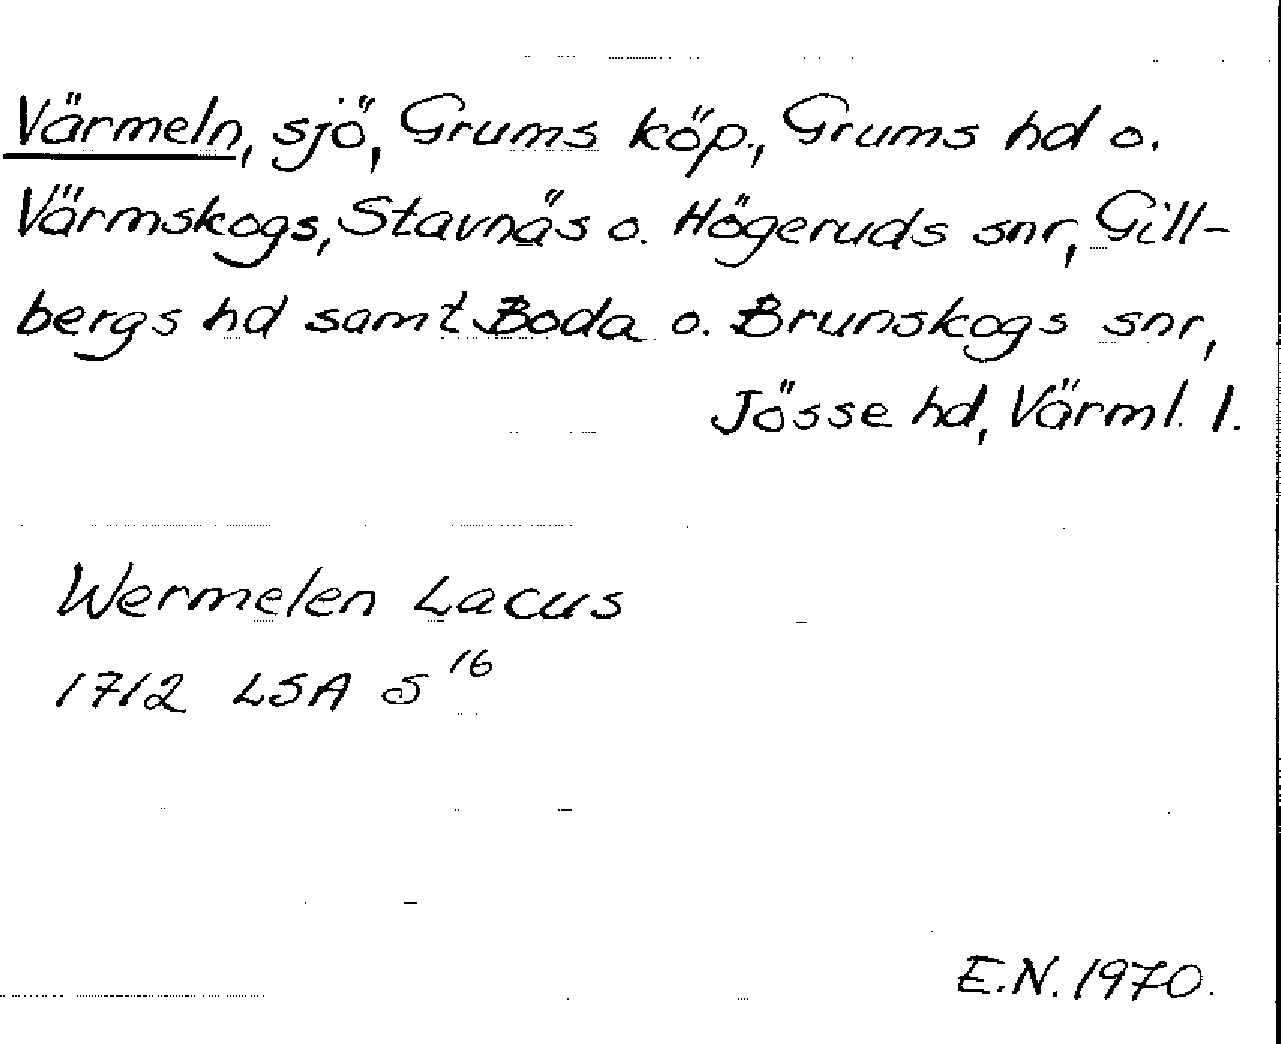 Värmeln, sjö, Grums köp., Grums hd o.
Värmskogs, Stavnäs o. Högeruds snr, Gill-
bergs hd samt Boda o. Brunskogs snr,
Jösse hd, Värml. l.
Wermelen Lacus
1712 LSA S 16
E.N. 1970.